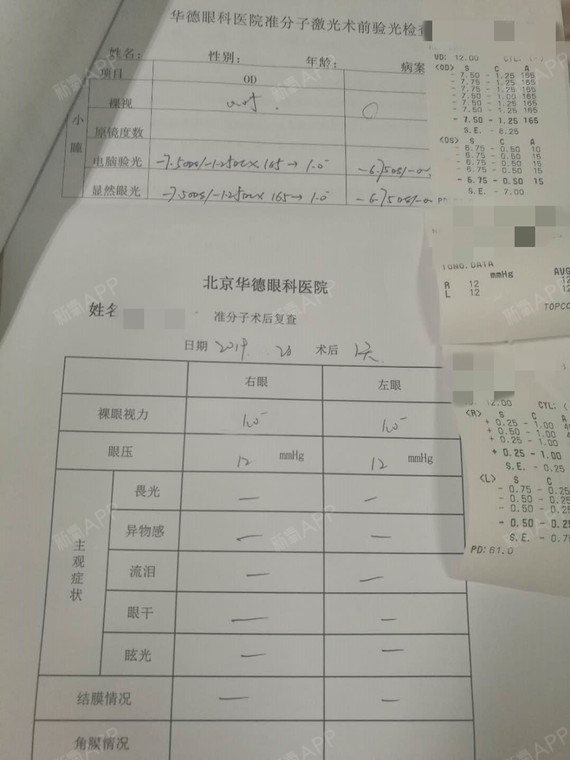 华德眼科医院准分子激光术前验光检查
姓名: 性别: 年龄: 病案
项目 OD
小瞳
裸视
原镜度数
电脑验光 -7.50DS/-1.25DC×165→1.0 -6.75DS/-0.
显然眼光 -7.50DS/-1.25DC×165→1.0 -6.75DS/-0
VD: 12.00 CYL:
<OD> S C A
- 7.50 - 1.25 165
- 7.75 - 1.25 165
- 7.75 - 1.25 165
- 7.50 - 1.00 165
- 7.50 - 1.25 165
- 7.50 - 1.25 165
- 7.50 - 1.25 165
S.E. - 8.25
<OS> S C A
- 6.75 - 0.50 10
- 6.75 - 0.50 15
- 6.75 - 0.50 15
- 6.75 - 0.50 15
S.E. - 7.00
PD:
TONO.DATA
mmHg AVG
R 12 12
L 12 12
TOPCO
北京华德眼科医院
姓名
准分子术后复查
日期 2019 20 术后 1天
右眼 左眼
裸眼视力 1.0 1.0
眼压 12 mmHg 12 mmHg
主观症状
畏光 — —
异物感 — —
流泪 — —
眼干 — —
眩光 — —
结膜情况 — —
角膜情况
12.00 CYL: (
<R> S C A
+ 0.25 - 1.00
+ 0.50 - 1.00
+ 0.25 - 1.00
+ 0.25 - 1.00
S.E. - 0.25
<L> S C
- 0.75 - 0.25
- 0.50 - 0.25
- 0.50 - 0.25
- 0.50 - 0.25
S.E. - 0.7
PD: 61.0
新氧APP